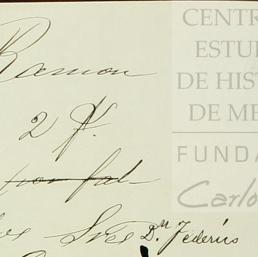 Ramon
2 F.
por fal-
Sres Dn Federis
CENTR
ESTU
DE HIST
DE ME
FUNDA
Carlo